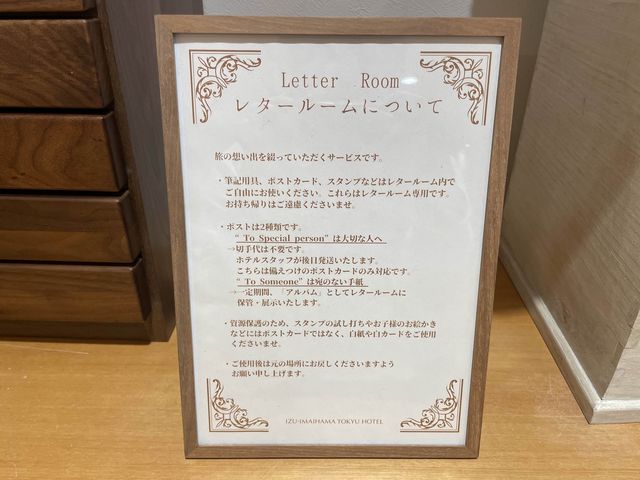 Letter Room
レタールームについて
旅の想い出を綴っていただくサービスです。
・筆記用具、ポストカード、スタンプなどはレタールーム内で
ご自由にお使いください。これらはレタールーム専用です。
お持ち帰りはご遠慮くださいませ。
・ポストは2種類です。
“To Special person”は大切な人へ
→切手代は不要です。
ホテルスタッフが後日発送いたします。
こちらは備えつけのポストカードのみ対応です。
“To Someone”は宛のない手紙
→一定期間、「アルバム」としてレタールームに
保管・展示いたします。
・資源保護のため、スタンプの試し打ちやお子様のお絵かき
などにはポストカードではなく、白紙や白カードをご使用
くださいませ。
・ご使用後は元の場所にお戻しくださいますよう
お願い申し上げます。
IZU-IMAIHAMA TOKYU HOTEL